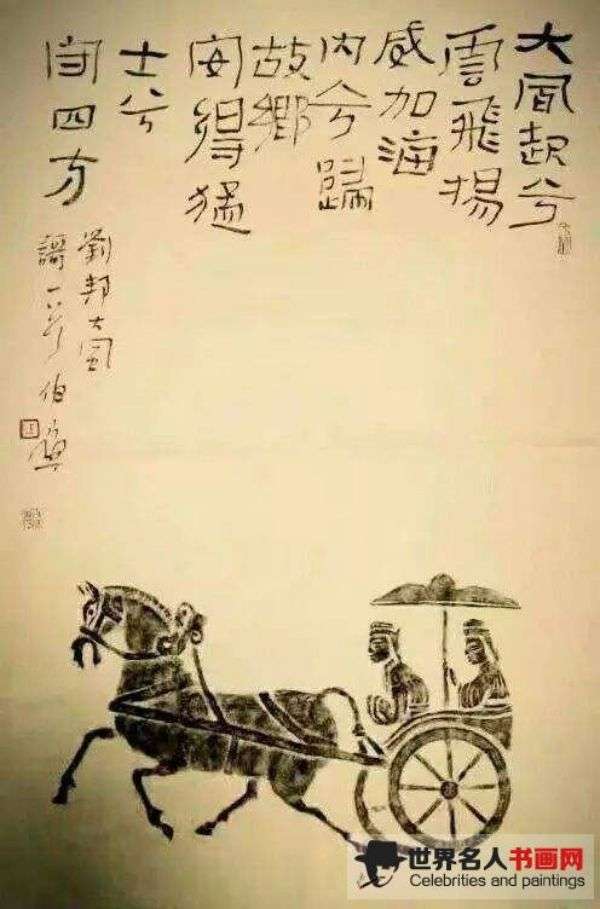 大風起兮
雲飛揚
威加海
内兮歸
故鄉
安得猛
士兮
守四方
劉邦大風
謌 伯
世界名人书画网
Celebrities and paintings